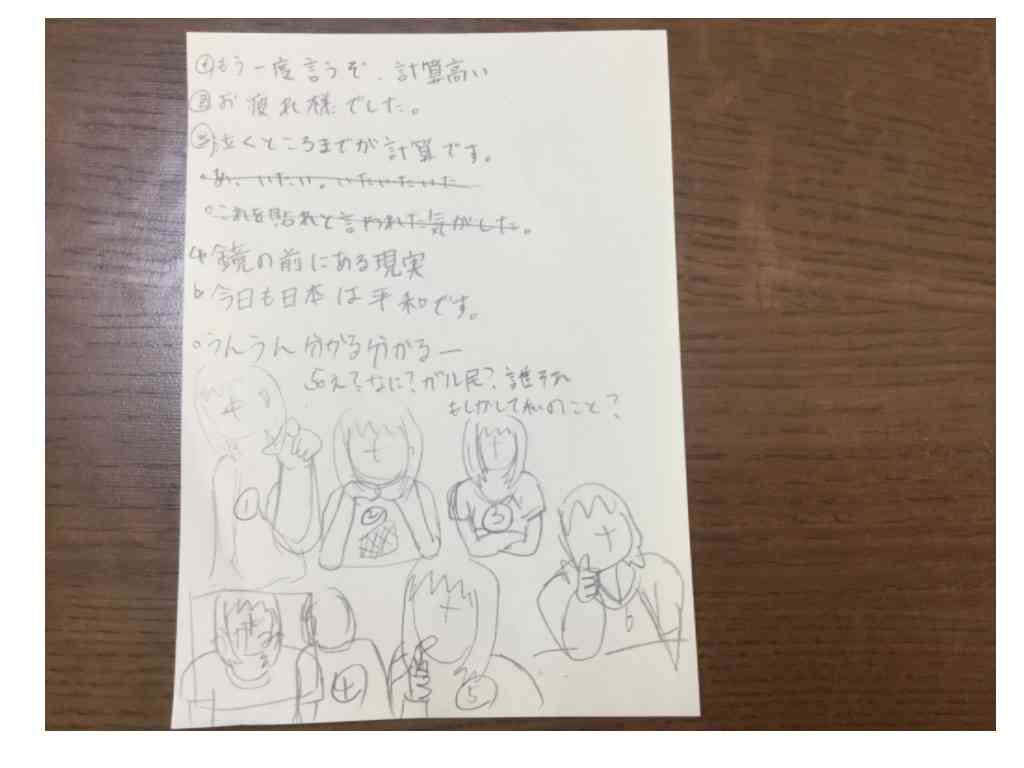 ①もう一度言うぞ、計算高い
②お疲れ様でした。
③泣くところまでが計算です。
・あ、いたい。いたいたいた
・これを貼れと言われた気がした。
4 鏡の前にある現実
6 今日も日本は平和です。
○うんうん分かる分かるー
5 え?なに?ガル民?誰それ
もしかして私のこと?
①
②
③
6
④
⑤